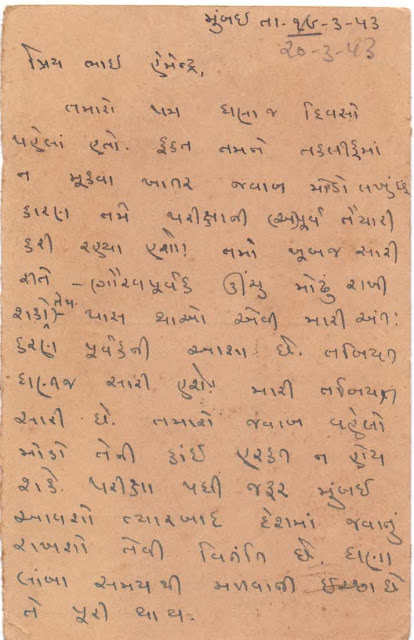 મુંબઈ તા. ૧૬-3-43
20-3-43
પ્રિય ભાઈ હેમેન્દ્ર,
તમારો પત્ર ઘણાજ દિવસો
પહેલાં હતો. ફકત તમને તકલીફમાં
ન મૂકવા ખાતર જવાબ મોડો લખું છું
કારણ તમે પરીક્ષાની અપૂર્વ તૈયારી
કરી રહ્યા હશો! તમો ખૂબજ સારી
રીતે - ગૌરવપૂર્વક ઊંચુ મોઢું રાખી
શકો તેમ પાસ થાઓ એવી મારી અંતઃ
કરણ પૂર્વકની આશા છે. તબિયત
ઘણીજ સારી હશે! મારી તબિયત
સારી છે. તમારો જવાબ વહેલો
મોડો તેની કાંઈ હરકત ન હોય
શકે. પરીક્ષા પછી જરૂર મુંબઈ
આવશો ત્યારબાદ દેશમાં જવાનું
રાખશો તેવી વિનંતિ છે. ઘણા
લાંબા સમયથી મળવાની ઇચ્છા છે
તે પૂરી થાય.